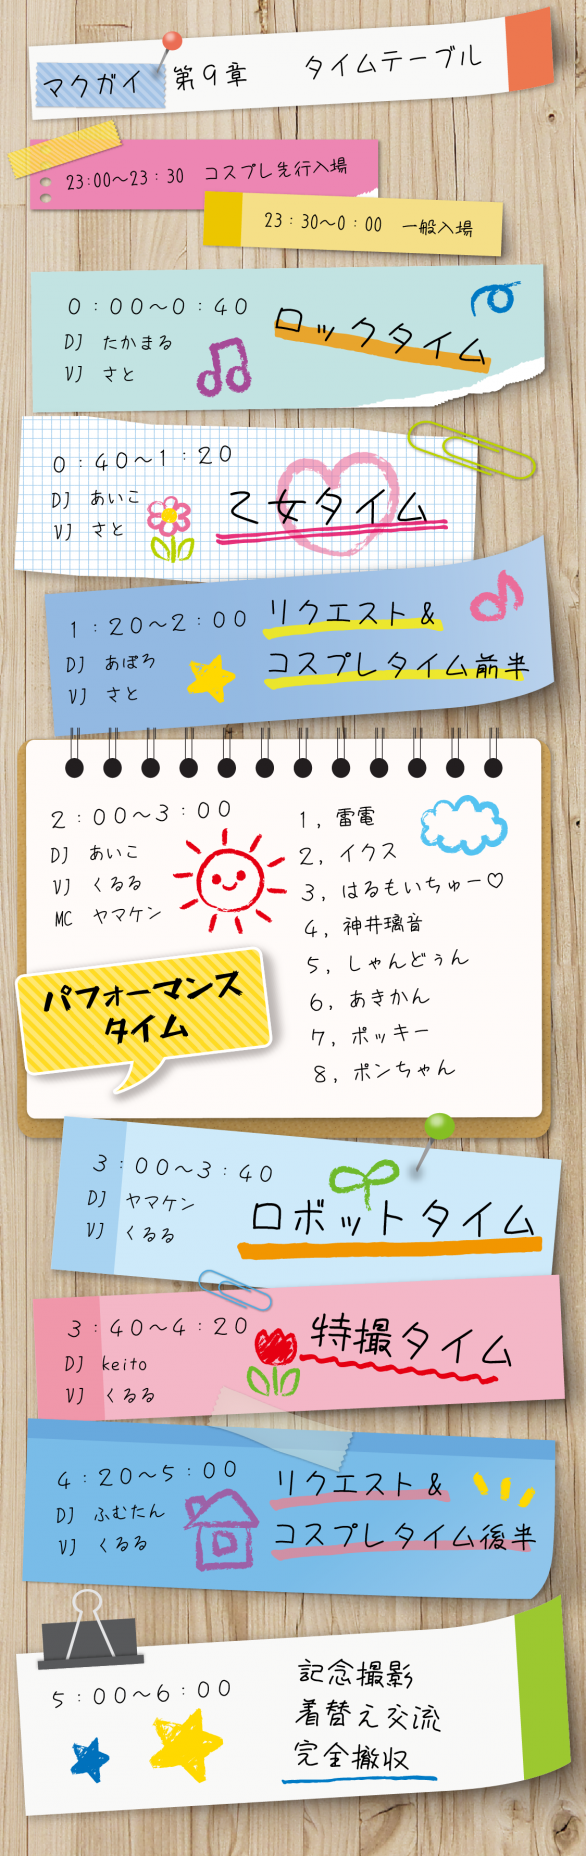 マクガイ 第9章 タイムテーブル
23:00～23：30 コスプレ先行入場
23：30～0：00 一般入場
0：00～0：40
DJ たかまる
VJ さと
ロックタイム
0：40～1：20
DJ あいこ
VJ さと
乙女タイム
1：20～2：00
DJ あぽろ
VJ さと
リクエスト＆
コスプレタイム前半
2：00～3：00
DJ あいこ
VJ くるる
MC ヤマケン
パフォーマンス
タイム
1, 雷電
2, イクス
3, はるもいちゅー♡
4, 神井璃音
5, しゃんどぅん
6, あきかん
7, ポッキー
8, ポンちゃん
3：00～3：40
DJ ヤマケン
VJ くるる
ロボットタイム
3：40～4：20
DJ keito
VJ くるる
特撮タイム
4：20～5：00
DJ ふむたん
VJ くるる
リクエスト＆
コスプレタイム後半
5：00～6：00
記念撮影
着替え交流
完全撤収